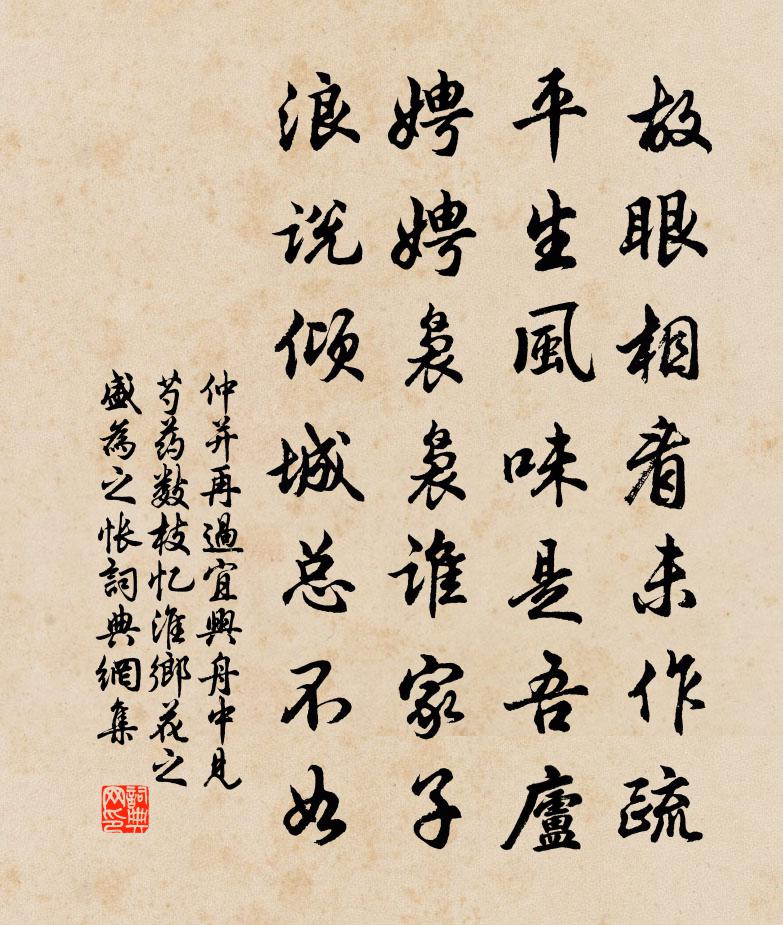 故眼相看未作疏
平生風味是吾廬
娉娉裊裊谁家子
浪说倾城总不如
仲并再過宜興舟中见
芍药数枝忆淮鄉花之
盛為之怅詞典網集
詞典网印